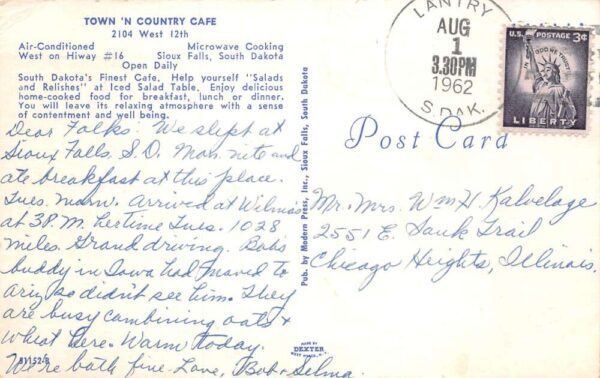 TOWN 'N COUNTRY CAFE
2104 West 12th
Air-Conditioned Microwave Cooking
West on Hiway #16 Sioux Falls, South Dakota
Open Daily
South Dakota's Finest Cafe. Help yourself "Salads
and Relishes" at Iced Salad Table. Enjoy delicious
home-cooked food for breakfast, lunch or dinner.
You will leave its relaxing atmosphere with a sense
of contentment and well being.
Dear Folks: We slept at
Sioux Falls, S.D. Mon. nite and
ate breakfast at this place.
Tues. morn. Arrived at Wilmas
at 3 P.M. her time Tues. 1028
miles. Grand driving. Bob's
buddy in Iowa had moved to
Ariz so didn't see him. They
are busy combining oats &
wheat here. Warm today.
We're both fine. Love, Bob & Selma.
81152-B
Pub. by Modern Press, Inc., Sioux Falls, South Dakota
MADE BY
DEXTER
Post Card
LANTRY
AUG
1
3.30PM
1962
S.DAK.
U.S. POSTAGE 3¢
IN GOD WE TRUST
LIBERTY
Mr. Mrs. Wm H Kalvelage
2551 E. Sauk Trail
Chicago Heights, Illinois.